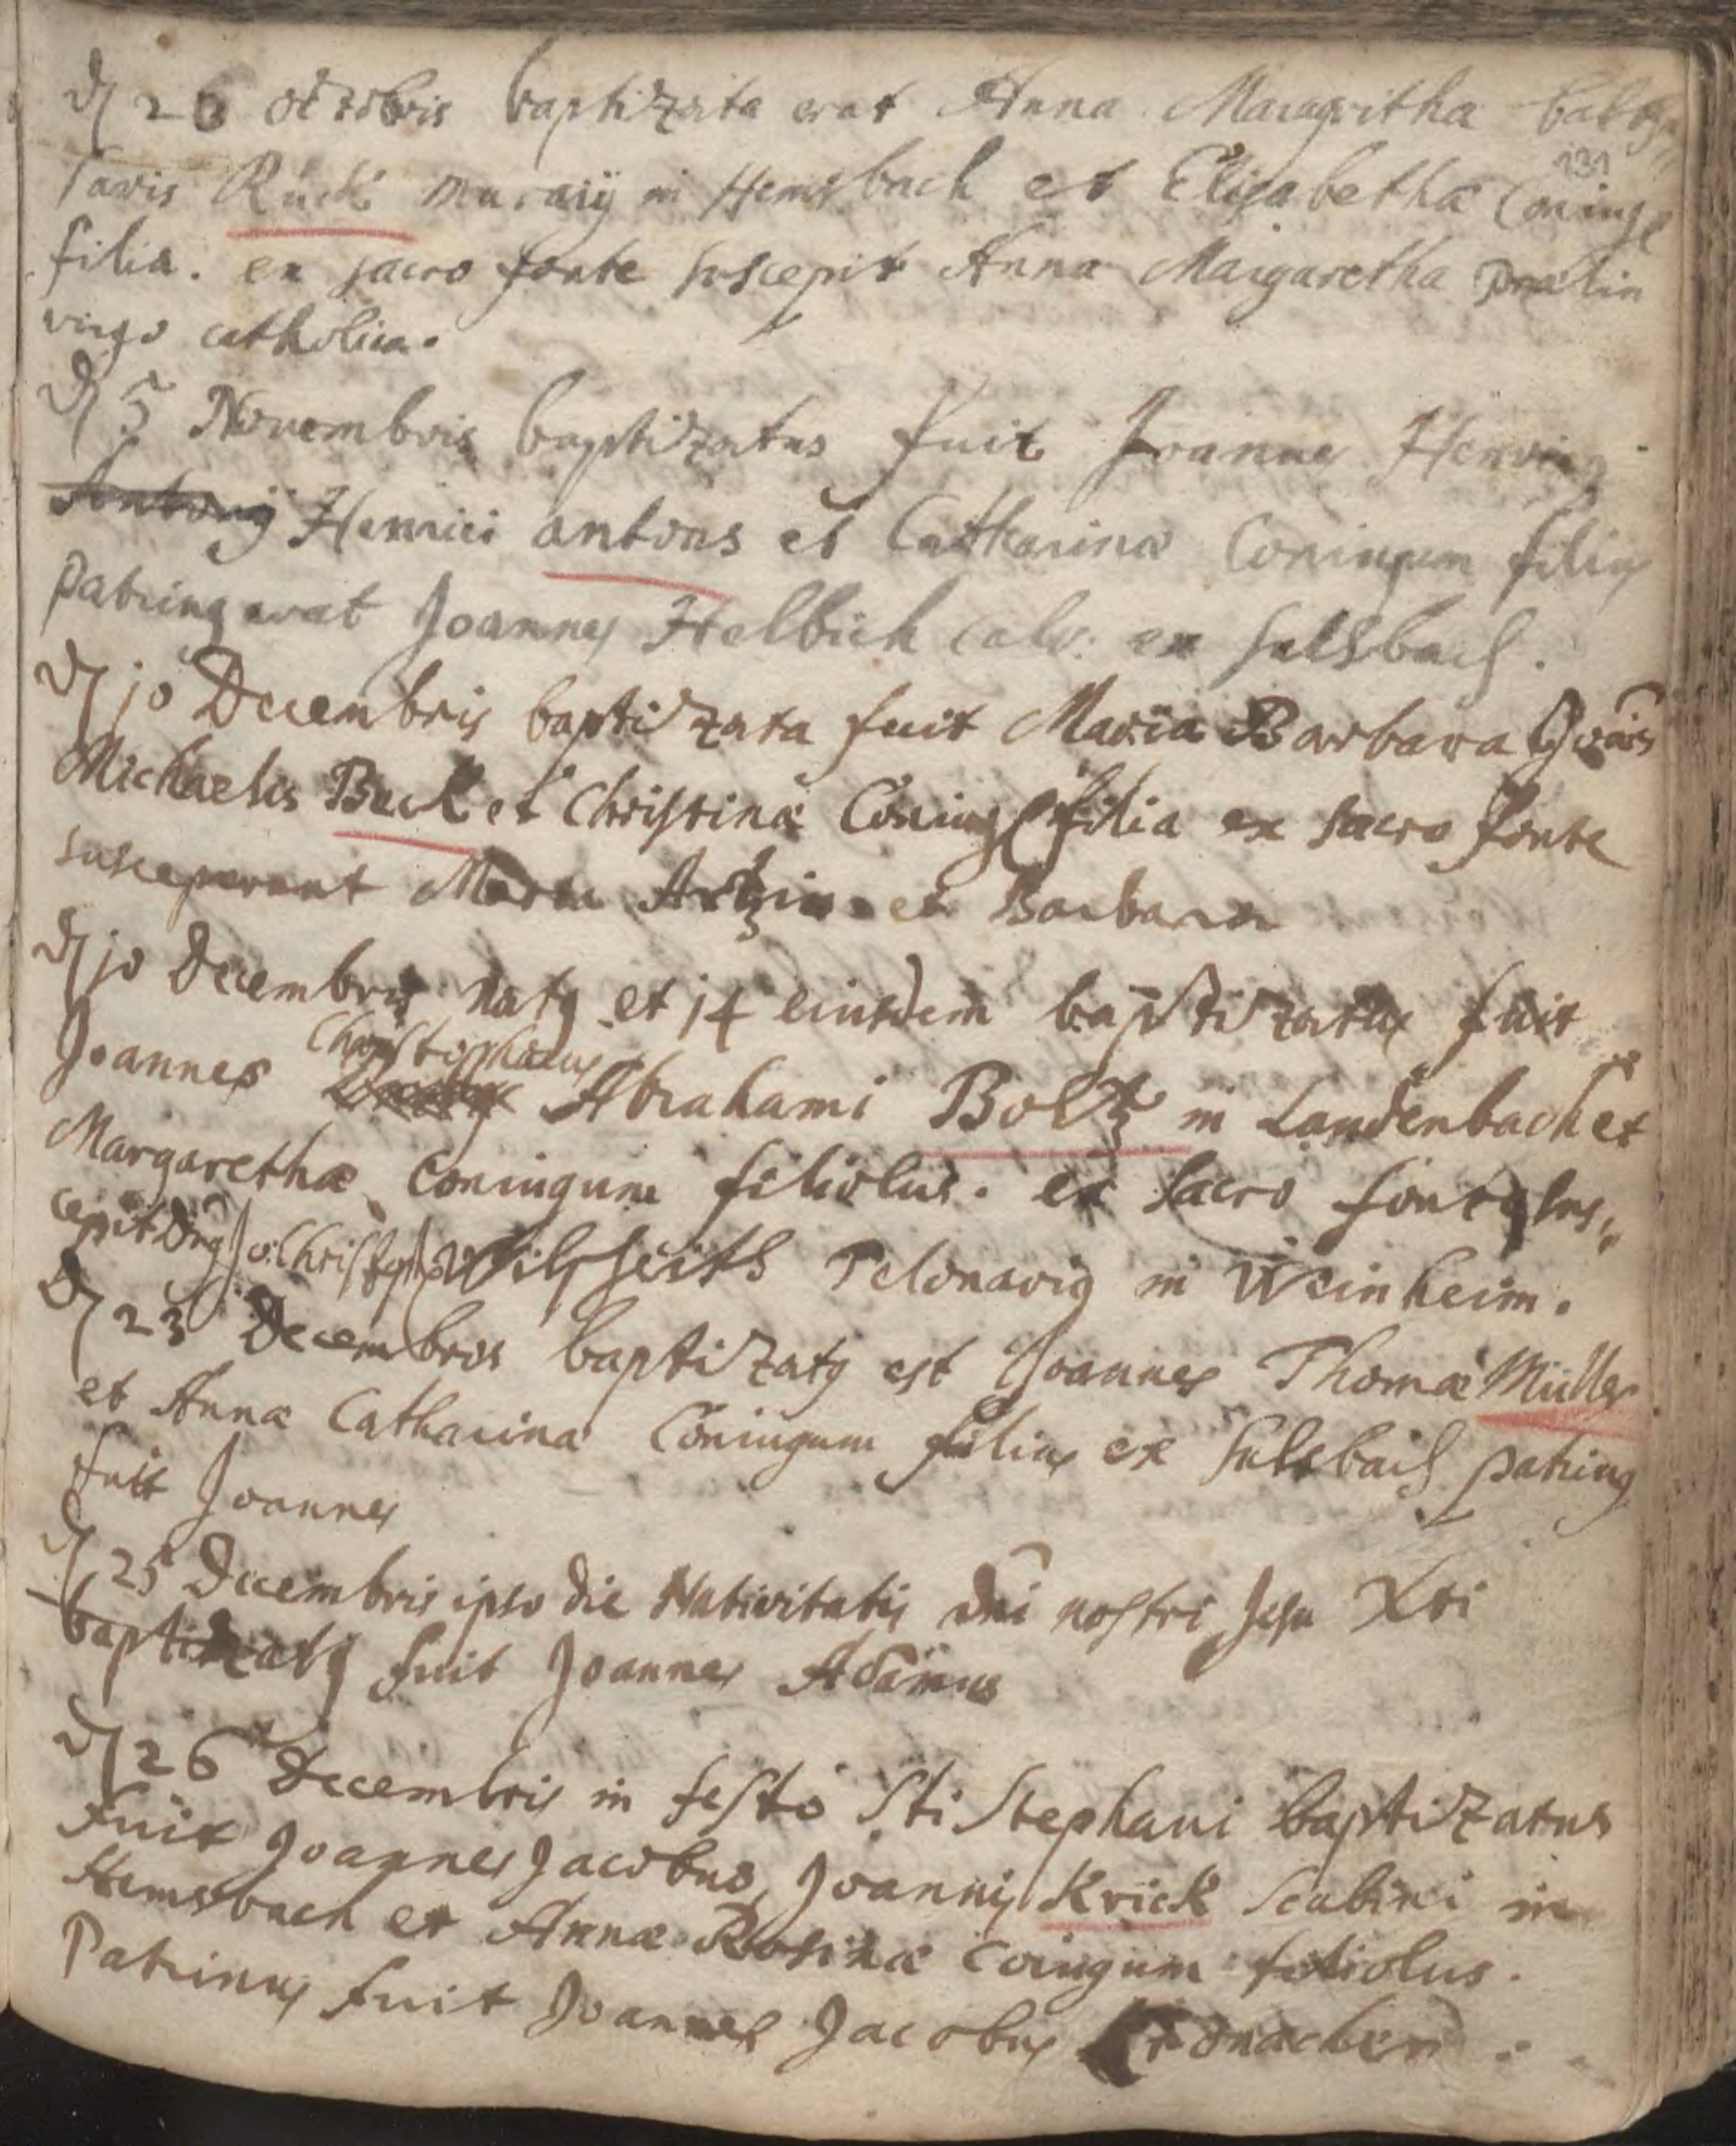 d 26 octobris baptizata erat Anna Maragritha baltha
131
saris Rück murarij in Hemsbach et Elisabethæ Coniug
filia. ex sacro fonte suscepit Anna Margaretha
virgo catholica.
d 5 Novembris baptizatus fuit Joannes Henricg
Antonij Henrici antons et Catharinæ Coniugum filiq
patring erat Joannes Helbich calv. ex sulsbach.
d 10 Decembris baptizata fuit Maria Barbara Jois
Michaelis Beck et Christinæ Coniug filia ex sacro fonte
susceperunt Maria Artzin et Barbara
d 10 Decembris natq et 14 eiusdem baptizatus fuit
Joannes Christophorus Abrahami Boltz in Laudenbach et
Margarethæ coniugum filiolus. ex sacro fonte sus„
cepit Dnq Jo: Christoph Telonariq in Weinheim.
d 23 Decembris baptizatq est Joannes Thomæ Müller
et Anna Catharina Coniugum filius ex sulsbach patrinq
fuit Joannes
d 25 Decembris ipso die Nativitatis dni nostri Jesu Xti
baptizatq fuit Joannes Adamus
d 26 Decembris in festo Sti Stephani baptizatus
fuit Joannes Jacobus, Joannis Krick Scabini in
Hemsbach et Annæ Rosinæ coiugum filiolus.
Patrinus fuit Joannes Jacobus Kronacher.